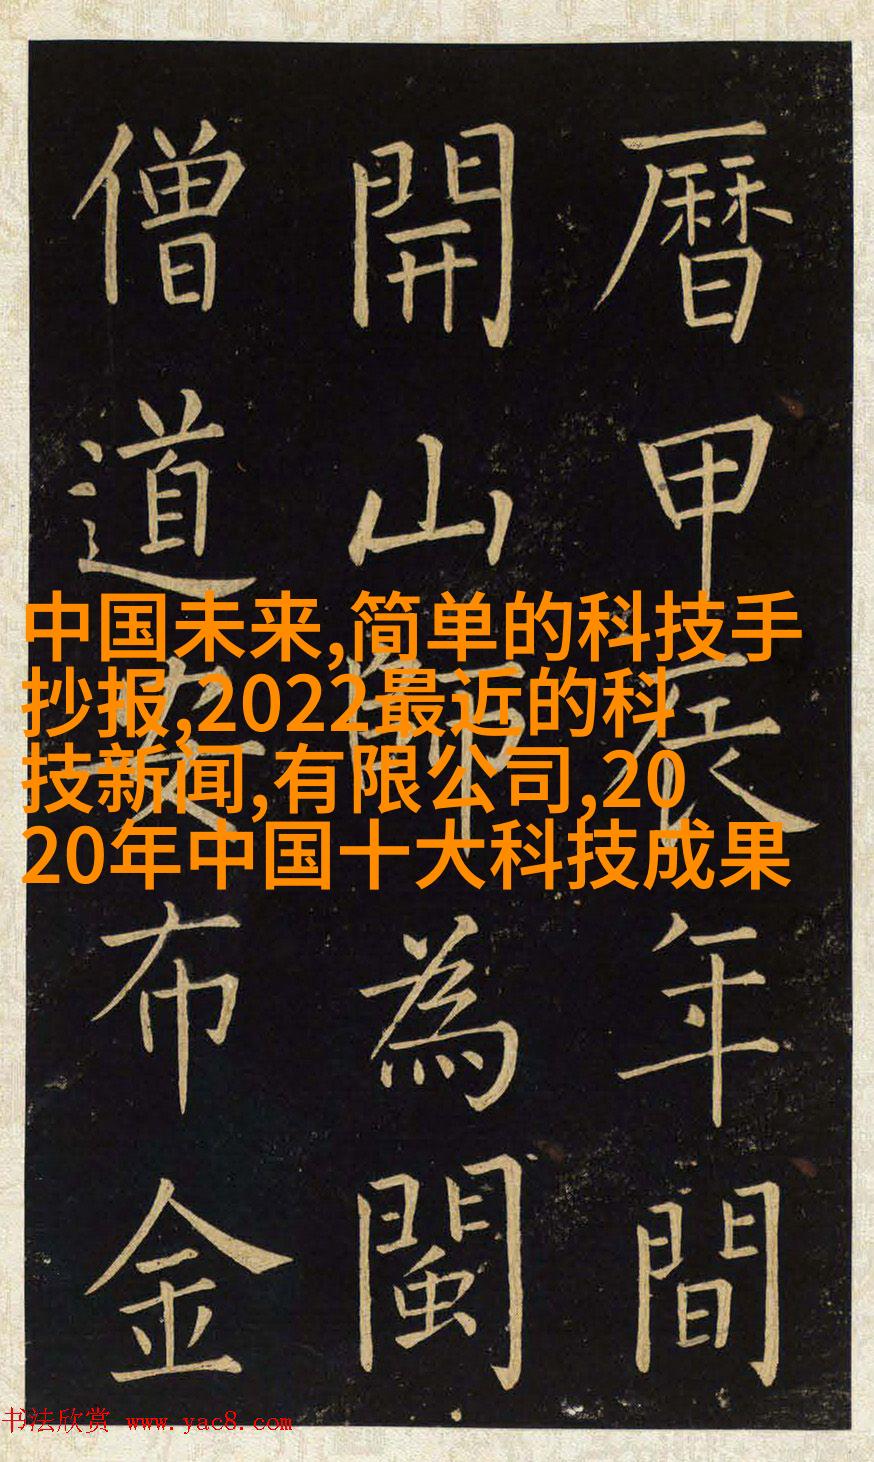 曆甲辰年間
開山師為閩
僧道布金
中国未来,简单的科技手
抄报,2022最近的科
技新闻,有限公司,20
20年中国十大科技成果
书法欣赏 www.yac8.com